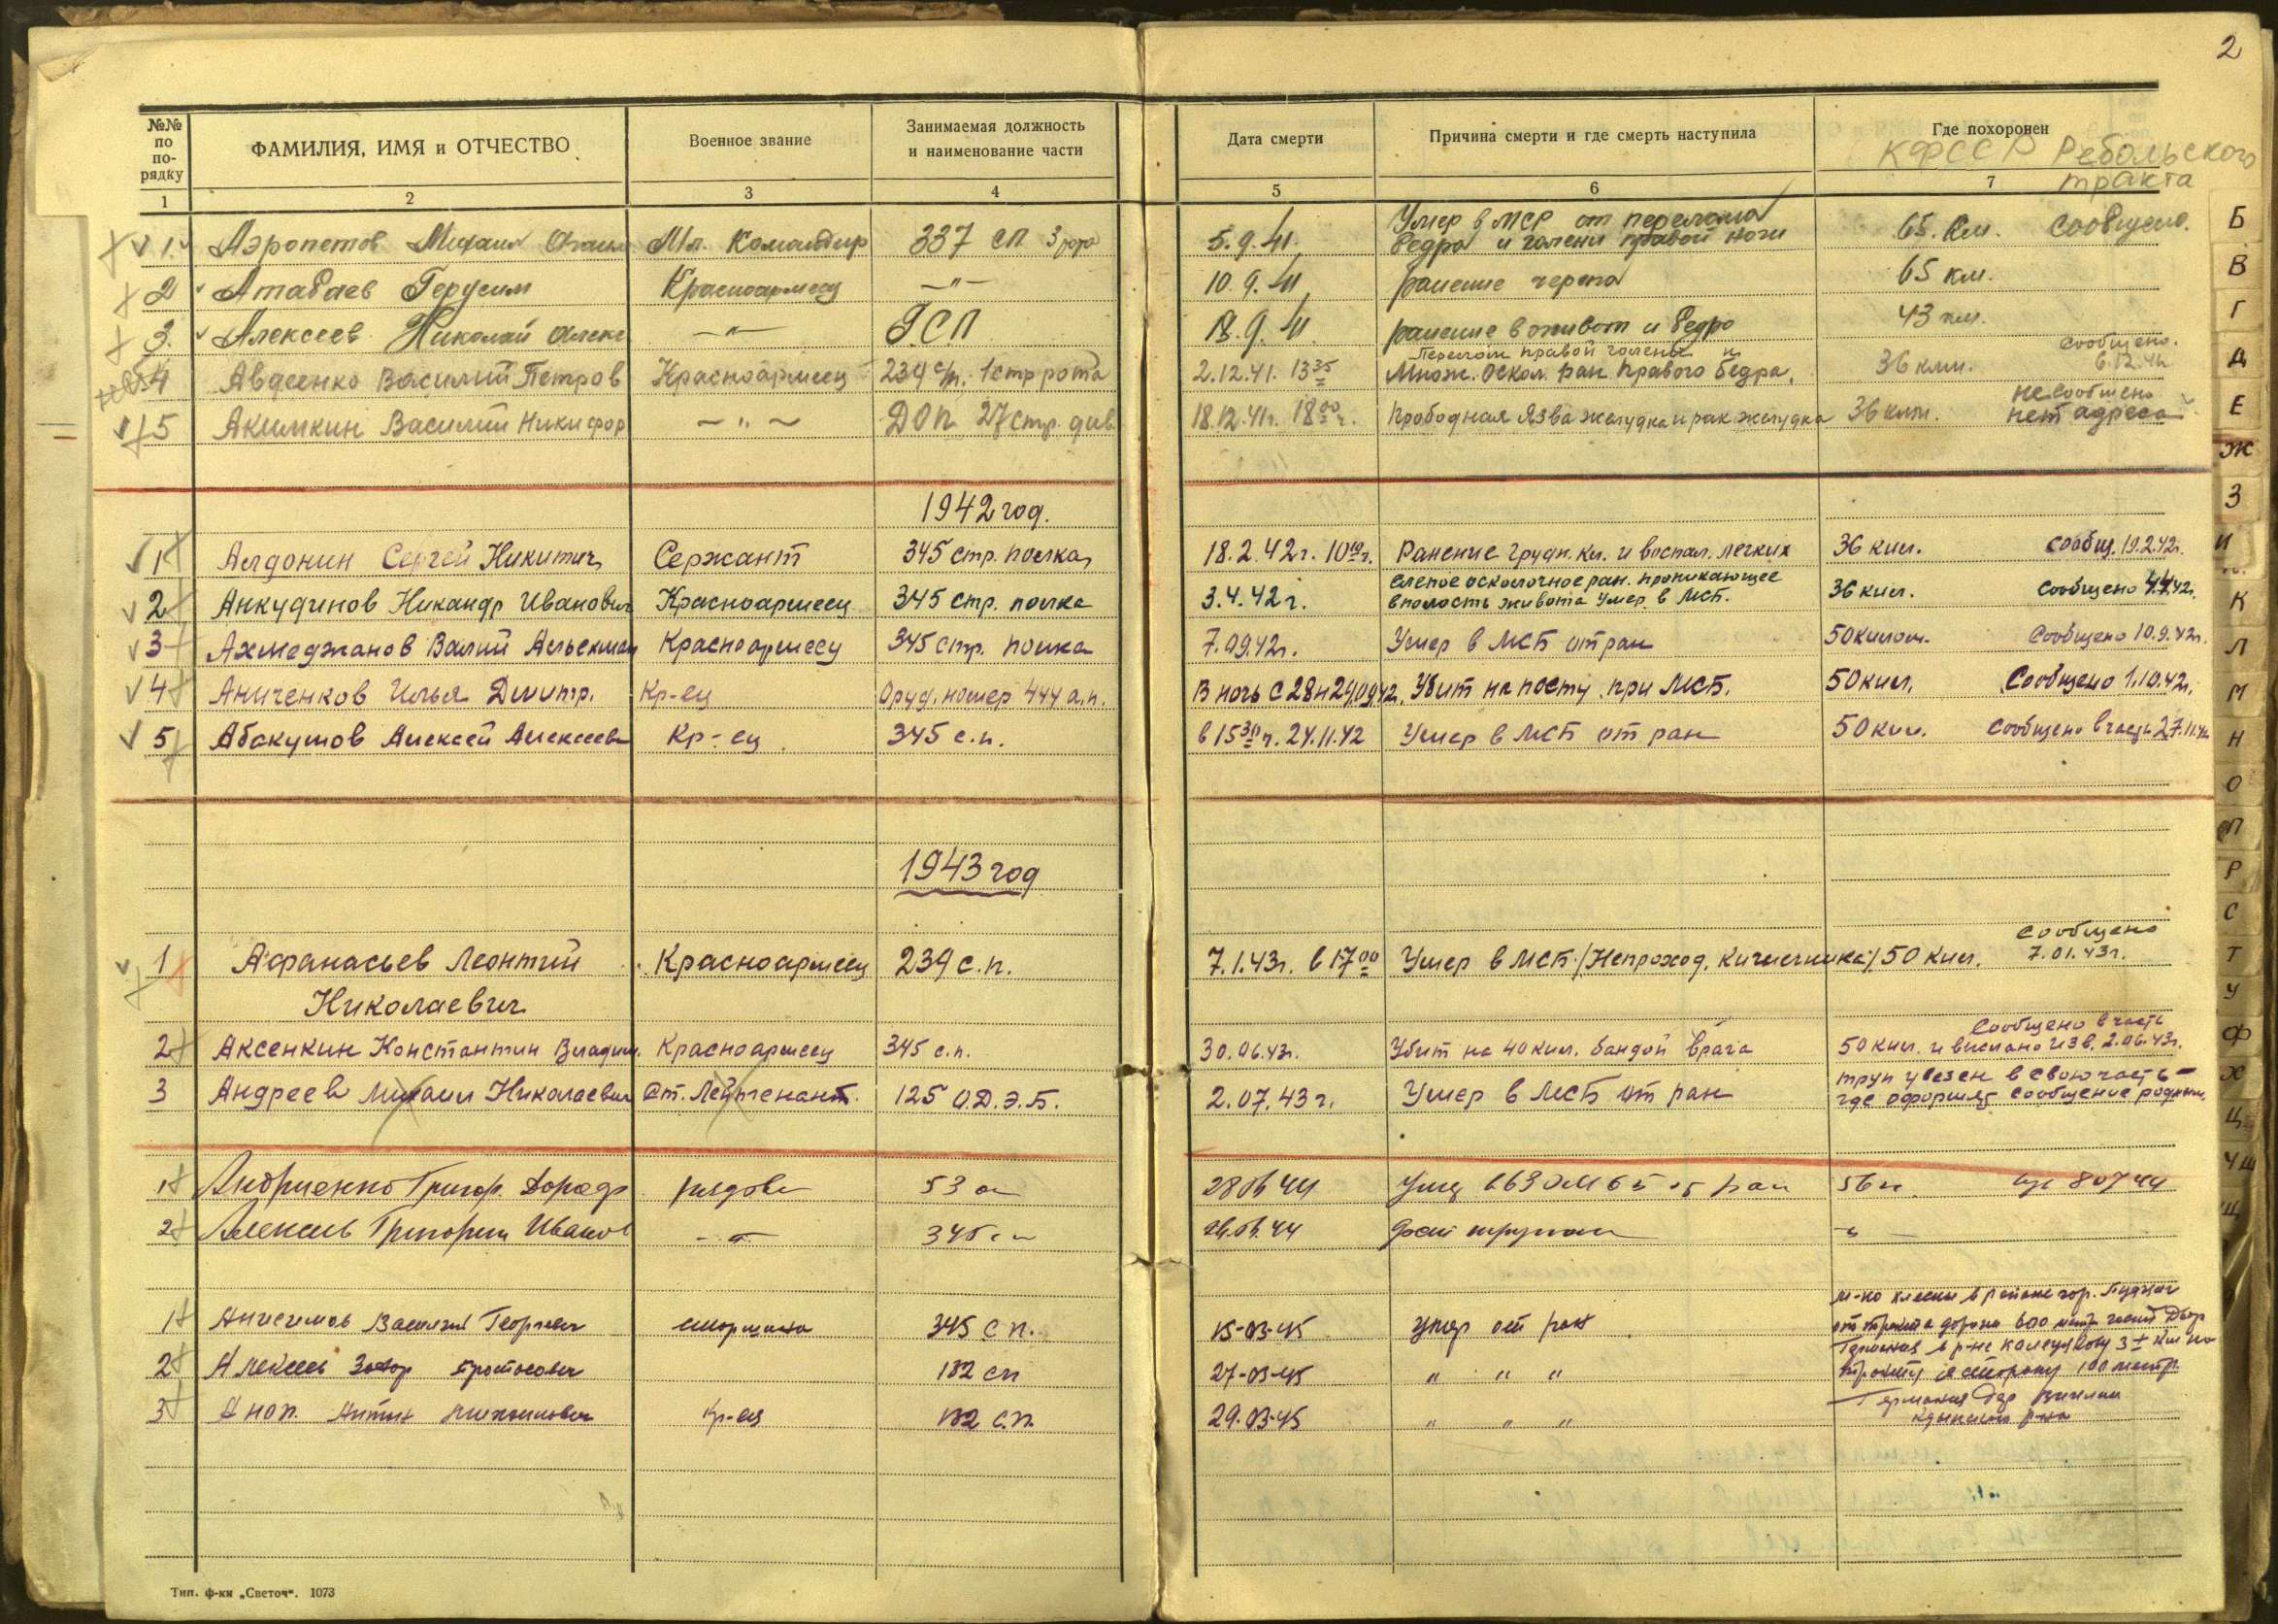 2
№№ по по-рядку
ФАМИЛИЯ, ИМЯ и ОТЧЕСТВО
Военное звание
Занимаемая должность и наименование части
Дата смерти
Причина смерти и где смерть наступила
Где похоронен
КФССР Ребольского тракта
1 2 3 4 5 6 7
Умер в МСР от перелома
1. Аэропетов Михаил Мл. Командир 337 СП 3 рота 5.9.41. бедра и голени правой ноги 65. км. сообщено.
2 Атабаев Герусим Красноармеец —"— 10.9.41 ранение черепа 65 км.
3. Алексеев Николай Алекс —"— ГСП 18.9.41 ранение в живот и бедро 43 км.
Перелом правой голени и сообщено.
4 Авдеенко Василий Петров Красноармеец 239 с/п. 1 стр рота 2.12.41. 13 35 Множ. оскол. ран правого бедра. 36 клм. 6.12.41
не сообщено
5 Акимкин Василий Никифор —"— ДОП 27 стр. див. 18.12.41г. 18 00 ч. Прободная язва желудка и рак желудка 36 клм. нет адреса
1942 год.
1 Алдонин Сергей Никитич Сержант 345 стр. полка 18.2.42г. 10 10 ч. Ранение грудн. кл. и воспал. легких 36 клм. сообщ. 19.2.42г.
слепое осколочное ран. проникающее
2 Анкудинов Никандр Иванович Красноармеец 345 стр. полка 3.4.42г. в полость живота умер в МСБ. 36 клм. сообщено 4.4.42г.
3 Ахмеджанов Валий Красноармеец 345 стр. полка 7.09.42г. Умер в МСБ от ран 50 килом. Сообщено 10.9.42г.
4 Аниченков Илья Дмитр. Кр-ец Оруд. номер 444 а.п. В ночь с 28 н 29.09.42. Убит на посту при МСБ. 50 клм. Сообщено 1.10.42г.
5 Абакумов Алексей Алексеев Кр-ец 345 с.п. в 15 30 ч. 24.11.42 Умер в МСБ от ран 50 клм. Сообщено в часть 27.11.42
1943 год
сообщено
1 Афанасьев Леонтий Красноармеец 239 с.п. 7.1.43г. в 17 00 Умер в МСБ /Непроход. кишечника/ 50 клм. 7.01.43г.
Николаевич
Сообщено в часть
2 Аксенкин Константин Владим. Красноармеец 345 с.п. 30.06.43г. Убит на 40 клм. бандой врага 50 клм. и выслано изв. 2.06.43г.
труп увезен в свою часть —
3 Андреев Михаил Николаевич Ст. Лейтенант. 125 О.Д.Э.Б. 2.07.43г. Умер в МСБ от ран где оформят сообщение родным.
1 Андриенко Григор. рядовой 53 28.06.44 Умер ран 8.07.44
2 Алексеев Григорий Иванов —"— 345 26.06.44
1 Анисимов Василий Георгиев старшина 345 с п. 15-03-45 умер от ран
2 Алексеев 132 сп 27-03-45 " " "
3 Аноп. Антон Кр-ец 132 с.п. 29.03.45 " " "
Тип. ф-ки „Светоч“. 1073
Б
В
Г
Д
Е
Ж
З
И
К
Л
М
Н
О
П
Р
С
Т
У
Ф
Х
Ц
Ч Ш
Щ